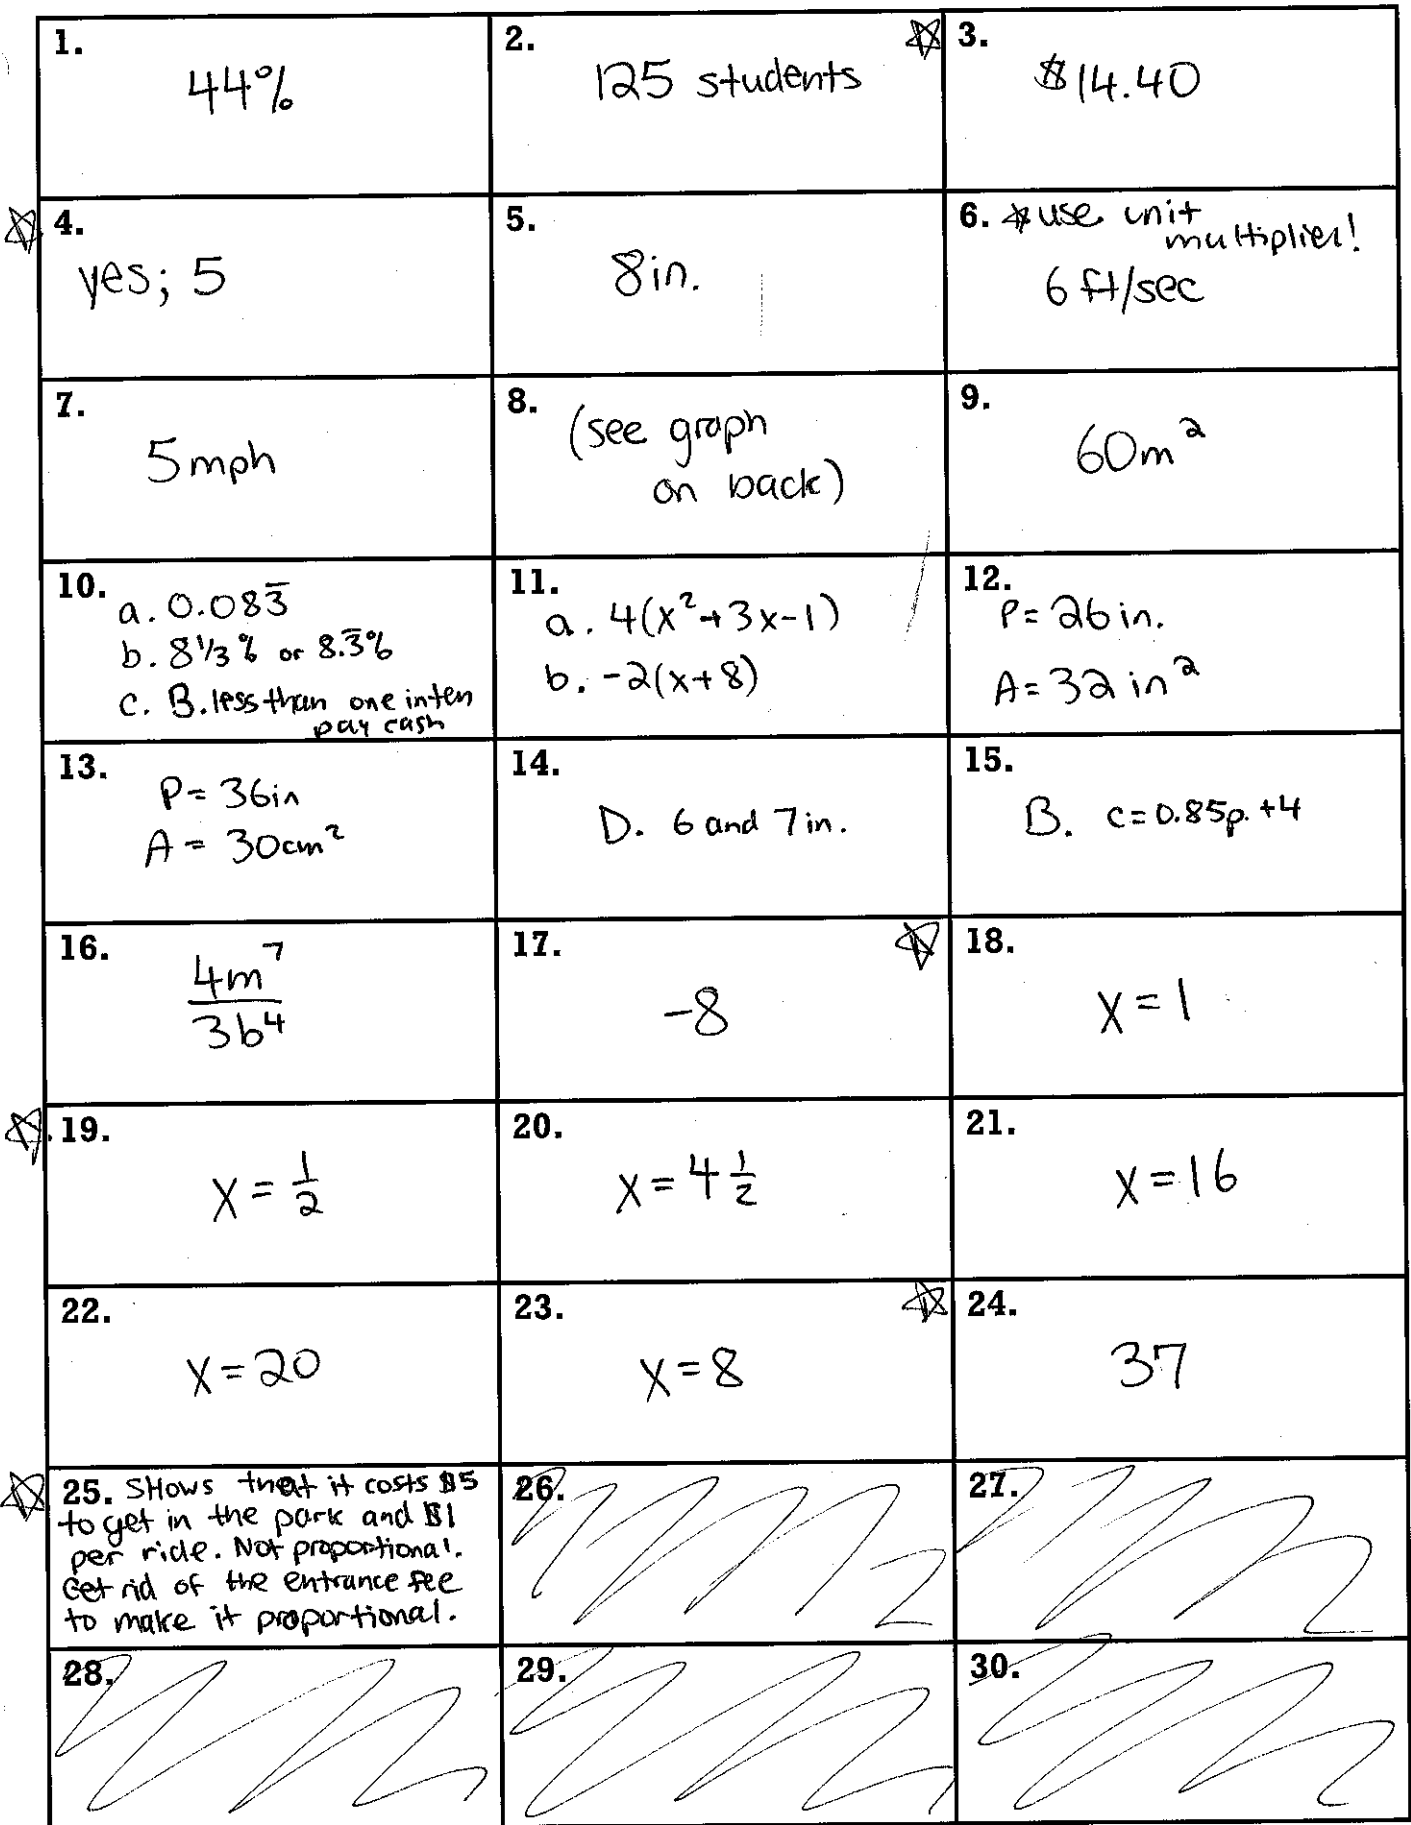 1.
44%
2.
125 students
3.
$14.40
4.
yes; 5
5.
8in.
6. *use unit
multiplier!
6 ft/sec
7.
5mph
8. (see graph
on back)
9.
60m²
10.
a. 0.083̅
b. 8⅓% or 8.3̅%
c. B. less than one in ten
pay cash
11.
a. 4(x²+3x-1)
b. -2(x+8)
12.
P= 26 in.
A= 32 in²
13.
P= 36in
A = 30cm²
14.
D. 6 and 7in.
15.
B. c=0.85p+4
16.
4m⁷/3b⁴
17.
-8
18.
x = 1
19.
x = 1/2
20.
x = 4 1/2
21.
x = 16
22.
x = 20
23.
x = 8
24.
37
25. Shows that it costs $5
to get in the park and $1
per ride. Not proportional.
Get rid of the entrance fee
to make it proportional.
26.
27.
28.
29.
30.